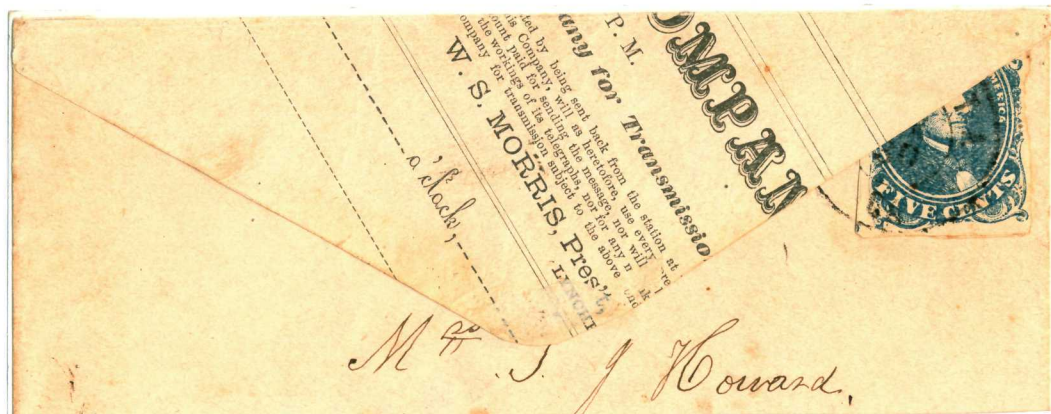 OMPAN
P. M.
any for Transmissio
ted by being sent back from the station at
is Company, will as heretofore, use every
ount paid for sending the message, nor will
the workings of its telegraphs, nor for any
ompany for transmission subject to the above
W. S. MORRIS, Pres't,
LYNCHB
o'clock,
AMERICA
FIVE CENTS
Mrs. S. J Howard,